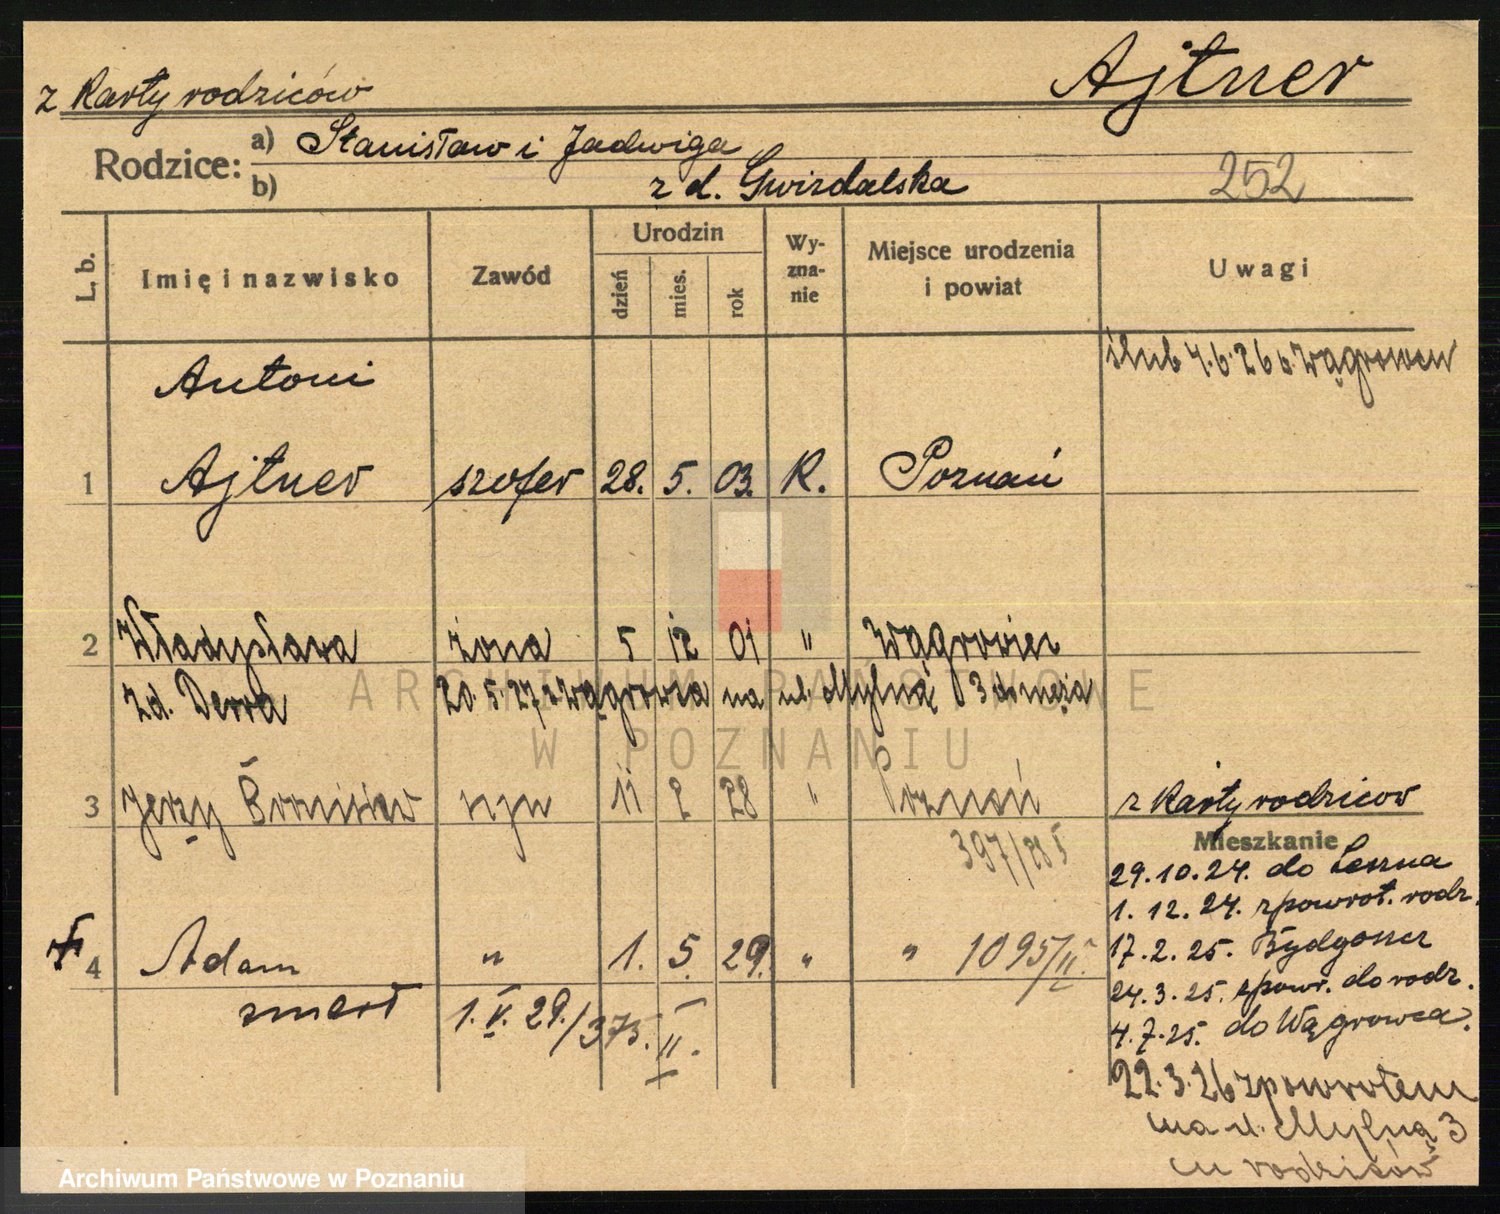 Ajtner
z Karty rodziców
Rodzice: a) Stanisław i Jadwiga
b) z d. Gwizdalska
252
L. b.
Imię i nazwisko
Zawód
Urodzin
dzień
mies.
rok
Wy-
zna-
nie
Miejsce urodzenia
i powiat
Uwagi
ślub 4.6.26 Wągrowiec
Antoni
1 Ajtner szofer 28. 5. 03. R. Poznań
2 Władysława żona 5 12 01 " Wągrowiec
z d. Derra 20.5.27 z Wągrowca na ul. Mylną 3 do męża
3 Jerzy Bronisław syn 11 2 28 " Poznań
397/28
z Karty rodziców
Mieszkanie
29.10.24. do Leszna
1.12.24. zpowrot. rodz.
17.2.25. Bydgoszcz
24.3.25. zpowr. do rodz.
4.7.25. do Wągrowca.
22.3.26 zpowrotem
na ul. Mylną 3
u rodziców
4 Adam " 1. 5. 29. " " 1095/II
zmarł 1.V.29./373.II.
ARCHIWUM PAŃSTWOWE
W POZNANIU
Archiwum Państwowe w Poznaniu